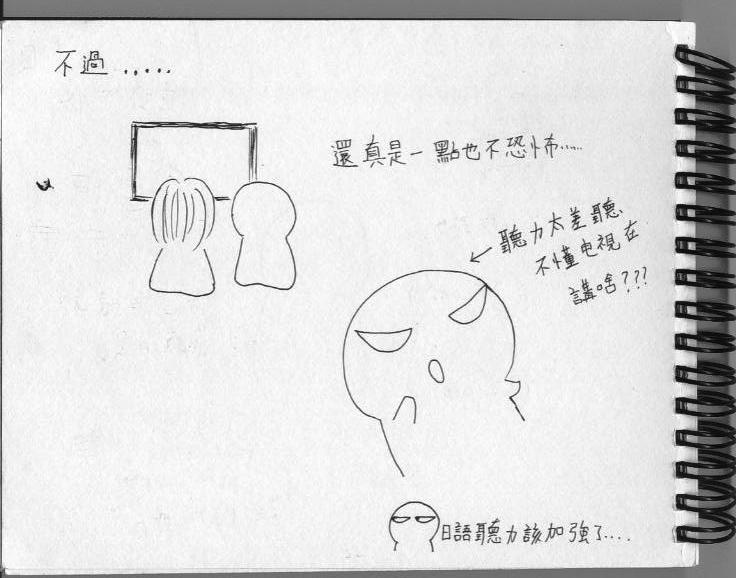 不過.....
還真是一點也不恐怖.....
聽力太差聽
不懂电視在
講啥???
日語聽力該加強了....